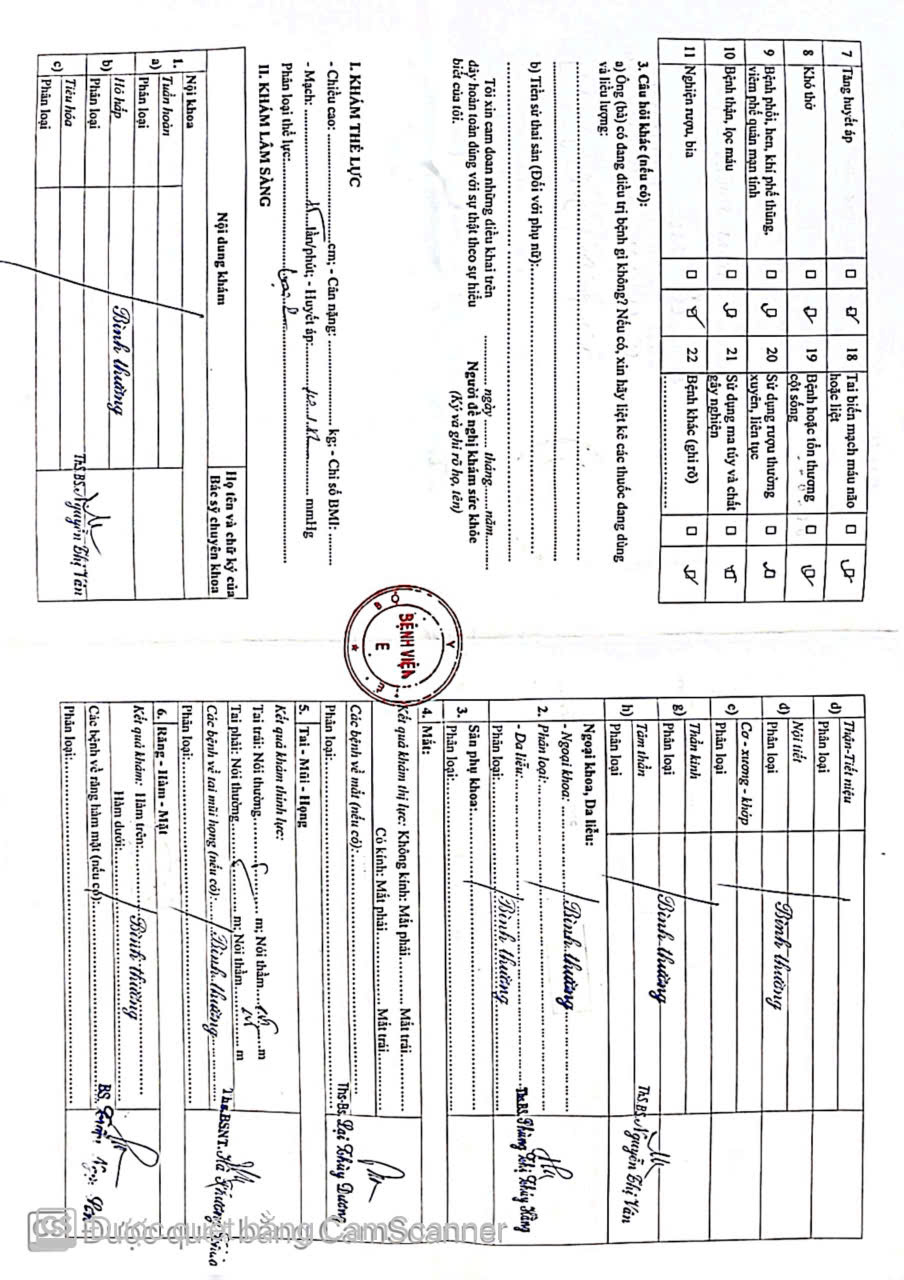 7 Tăng huyết áp □ ☑ 18 Tai biến mạch máu não hoặc liệt □ ☑
8 Khó thở □ ☑ 19 Bệnh hoặc tổn thương cột sống □ ☑
9 Bệnh phổi, hen, khí phế thũng, viêm phế quản mạn tính □ ☑ 20 Sử dụng rượu thường xuyên, liên tục □ ☑
10 Bệnh thận, lọc máu □ ☑ 21 Sử dụng ma túy và chất gây nghiện □ ☑
11 Nghiện rượu, bia □ ☑ 22 Bệnh khác (ghi rõ) □ ☑
3. Câu hỏi khác (nếu có):
a) Ông (bà) có đang điều trị bệnh gì không? Nếu có, xin hãy liệt kê các thuốc đang dùng
và liều lượng:
b) Tiền sử thai sản (Đối với phụ nữ):
Tôi xin cam đoan những điều khai trên
đây hoàn toàn đúng với sự thật theo sự hiểu
biết của tôi.
......... ngày ......... tháng.....năm.........
Người đề nghị khám sức khỏe
(Ký và ghi rõ họ, tên)
I. KHÁM THỂ LỰC
- Chiều cao: ..........cm; - Cân nặng: .......... kg; - Chỉ số BMI: ..........
- Mạch: ..........lần/phút; - Huyết áp:.......... mmHg
Phân loại thể lực:..........
II. KHÁM LÂM SÀNG
Nội dung khám
Họ tên và chữ ký của
Bác sỹ chuyên khoa
1. Nội khoa
a) Tuần hoàn
Phân loại
b) Hô hấp
Phân loại
Bình thường
c) Tiêu hóa
Phân loại
ThS.BS. Nguyễn Thị Vân
Y
BỆNH VIỆN
E
d) Thận-Tiết niệu
Phân loại
đ) Nội tiết
Phân loại
Bình thường
e) Cơ - xương - khớp
Phân loại
g) Thần kinh
Phân loại
Bình thường
h) Tâm thần
Phân loại
ThS.BS. Nguyễn Thị Vân
2. Ngoại khoa, Da liễu:
- Ngoại khoa: ..........
Bình thường
- Phân loại: ..........
- Da liễu: ..........
Phân loại: ..........
Bình thường
Ths.BS. Phùng Thị Thúy Hằng
3. Sản phụ khoa:..........
Phân loại:..........
4. Mắt:
Kết quả khám thị lực: Không kính: Mắt phải.......... Mắt trái..........
Có kính: Mắt phải.......... Mắt trái..........
Các bệnh về mắt (nếu có):..........
Phân loại:..........
Ths-Bs. Lại Thùy Dương
5. Tai - Mũi - Họng
Kết quả khám thính lực:
Tai trái: Nói thường.......... m; Nói thầm..........m
Tai phải: Nói thường.......... m; Nói thầm..........m
Các bệnh về tai mũi họng (nếu có):.....Bình thường.....
Phân loại:..........
Ths.BSNT. Hà Phương
6. Răng - Hàm - Mặt
Kết quả khám: Hàm trên:..........
Bình thường
Hàm dưới:..........
Các bệnh về răng hàm mặt (nếu có):..........
Phân loại:..........
BS. Ngọc
CS Được quét bằng CamScanner